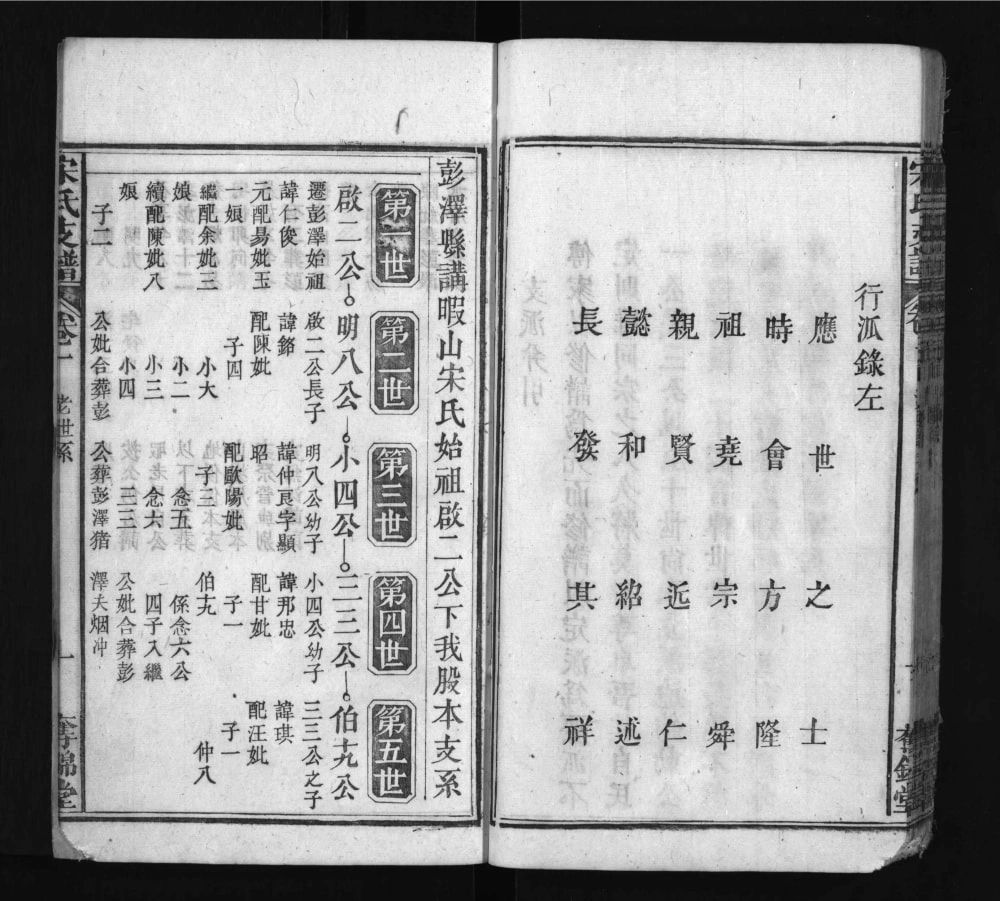 行派錄左
應世之士
時會方隆
祖堯宗舜
親賢近仁
懿和紹述
長發其祥
彭澤縣講暇山宋氏始祖啟二公下我股本支系
第一世
啟二公
遷彭澤始祖
諱仁俊
元配易妣玉
一娘
繼配余妣三
娘
續配陳妣八
娘
子二
第二世
明八公
啟二公長子
諱銘
配陳妣
子四
小大
小二
小三
小四
公妣合葬彭
第三世
小四公
明八公幼子
諱仲良字顯
昭
配歐陽妣
子三
念五
念六
三三
公葬彭澤猪
第四世
三三公
小四公幼子
諱邦忠
配甘妣
子一
伯九
係念六公
四子入繼
公妣合葬彭
澤夫烟冲
第五世
伯九公
三三公之子
諱琪
配汪妣
子一
仲八
宋氏支譜
卷一
老世系
一